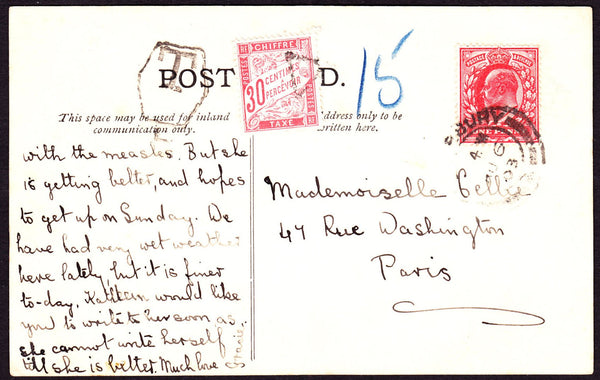 T
POST      D.
CHIFFRE
POSTES
RF
30 CENTIMES
À PERCEVOIR
TAXE
15
POSTAGE & REVENUE
This space may be used for inland
communication only.
ddress only to be
written here.
with the measles. But she
is getting better, and hopes
to get up on Sunday. We
have had very wet weather
here lately, but it is finer
to-day. Kathleen would like
you to write to her soon as
she cannot write herself
till she is better. Much love
Mademoiselle
47 Rue Washington
Paris